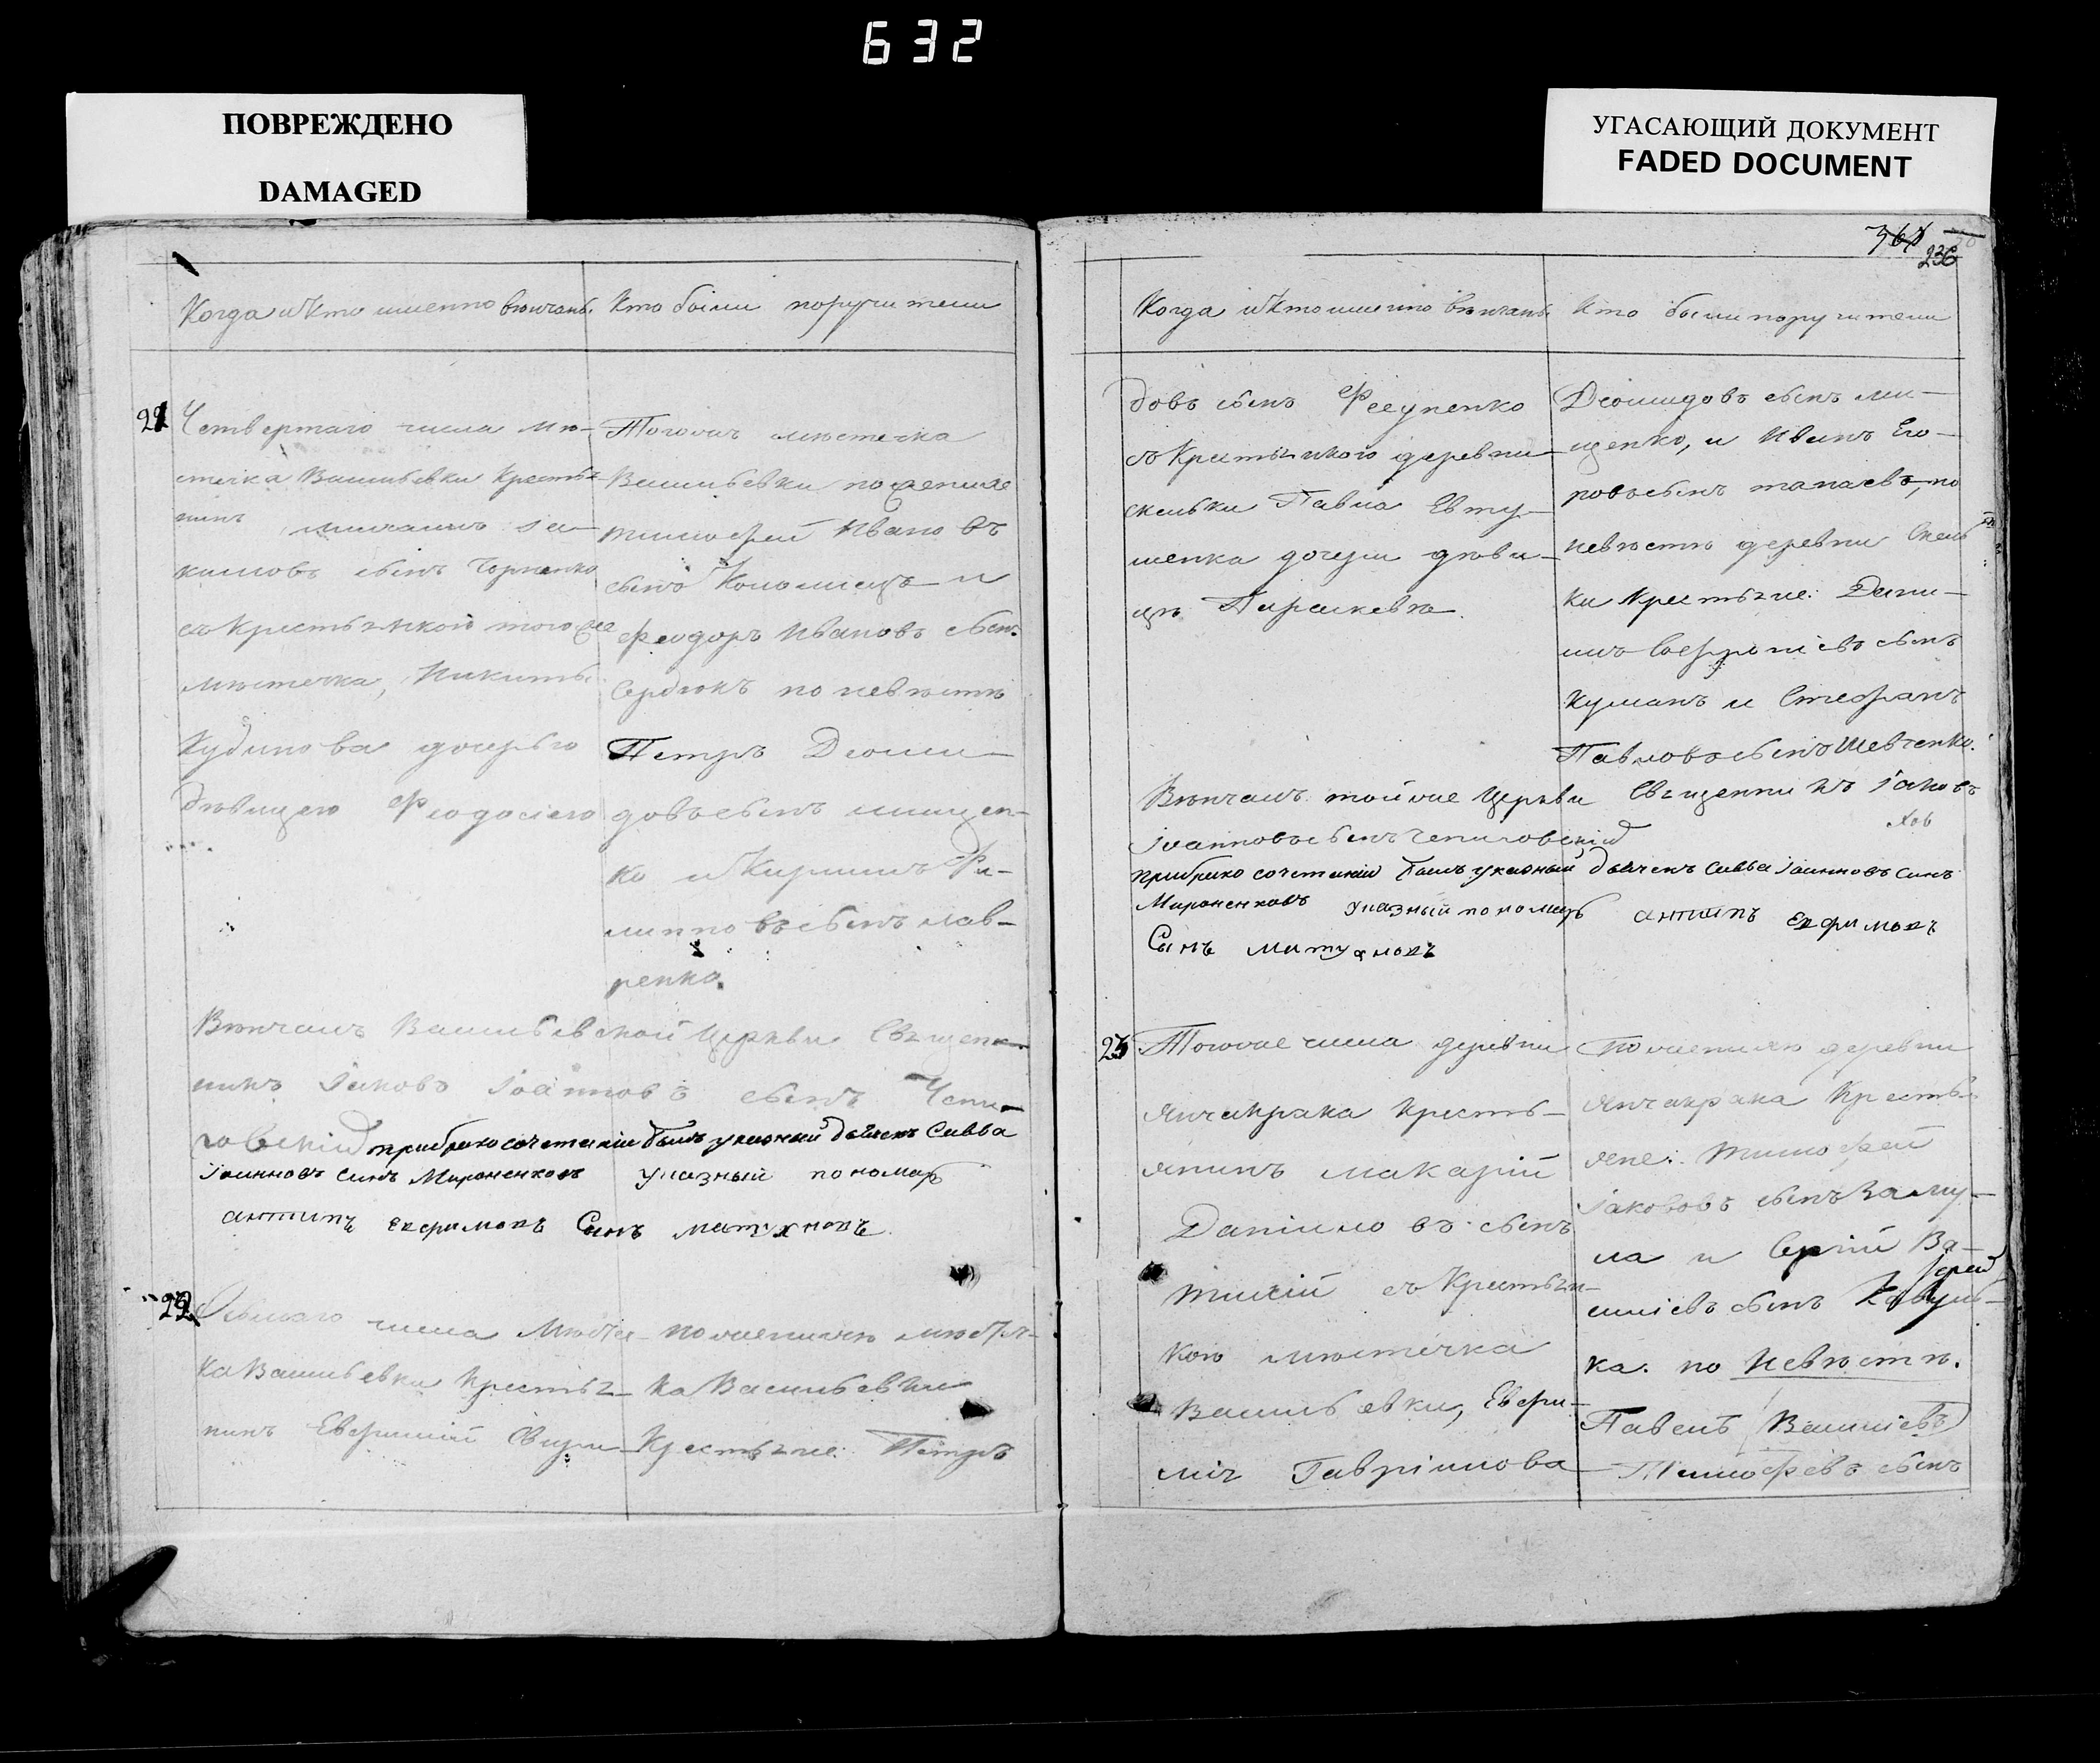 632
ПОВРЕЖДЕНО
DAMAGED
УГАСАЮЩИЙ ДОКУМЕНТ
FADED DOCUMENT
236
Когда и кто именно венчанъ.
Кто были поручители
21
Четвертаго числа мѣ-
стечка Васильевки Кресть-
нинъ
кимовъ сынъ
съ Крестьянкою тогоже
мѣстечка, Никиты
Кудинова дочерью
дѣвицею Феодосіею
Тогожъ мѣстечка
Васильевки по женихѣ
тимофей Ивановъ
сынъ Коломиецъ и
Феодоръ Ивановъ сынъ
Сердюкъ по невѣстѣ
Петръ Дiоми-
довъ сынъ мищен-
ко и Кирилъ Фи-
липповъ сынъ лав-
ренко.
Вѣнчалъ Васильевской Церкви Священ-
никъ Іаковъ Іоанновъ сынъ Чепи-
говскій при бракосочетаніи былъ указный дьячекъ Савва
Іоанновъ синъ Мироненковъ указный пономарь
антипъ ефимовъ Сынъ матухновъ
22
Осьмаго числа Мѣсте-
ка Васильевки Крестья-
нинъ Евфимій Свири-
по женихѣ мѣстеч-
ка Васильевки
Крестьяне: Петръ
Когда и кто именно вѣнчанъ
Кто были поручители
довъ сынъ Фесуненко
съ Крестьянкою деревни
скельки Павла Евту-
шенка дочери дѣви-
цѣ Параскевѣ.
Дiомидовъ сынъ ми-
щенко, и Иванъ Его-
ровъ сынъ капаевъ, по
невѣстѣ деревни Скель
ки Крестьяне: Дани-
илъ Софроніевъ сынъ
Куманъ и Стефанъ
Павловъ сынъ Шевченко.
Вѣнчалъ тойже Церкви Священникъ Іаковъ
Іоанновъ сынъ Чепиговскій
при бракосочетаніи былъ указный дьячекъ Савва Іоанновъ синъ
Мироненковъ указный пономарь антипъ ефимовъ
Сынъ матухновъ
23
Тогоже числа деревни
Янчакрака Кресть-
янинъ макарій
Даніиловъ сынъ
съ Крестьян-
кою мѣстечка
Васильевки, Евфи-
міи Гавріилова
По женихѣ деревни
Янчакрака Кресть-
яне: Тимофей
Іаковъ сынъ Заму-
ла и Сергій Ва-
силіевъ сынъ
ка. по Невѣстѣ.
Павелъ Василіевъ
Тимофеевъ сынъ